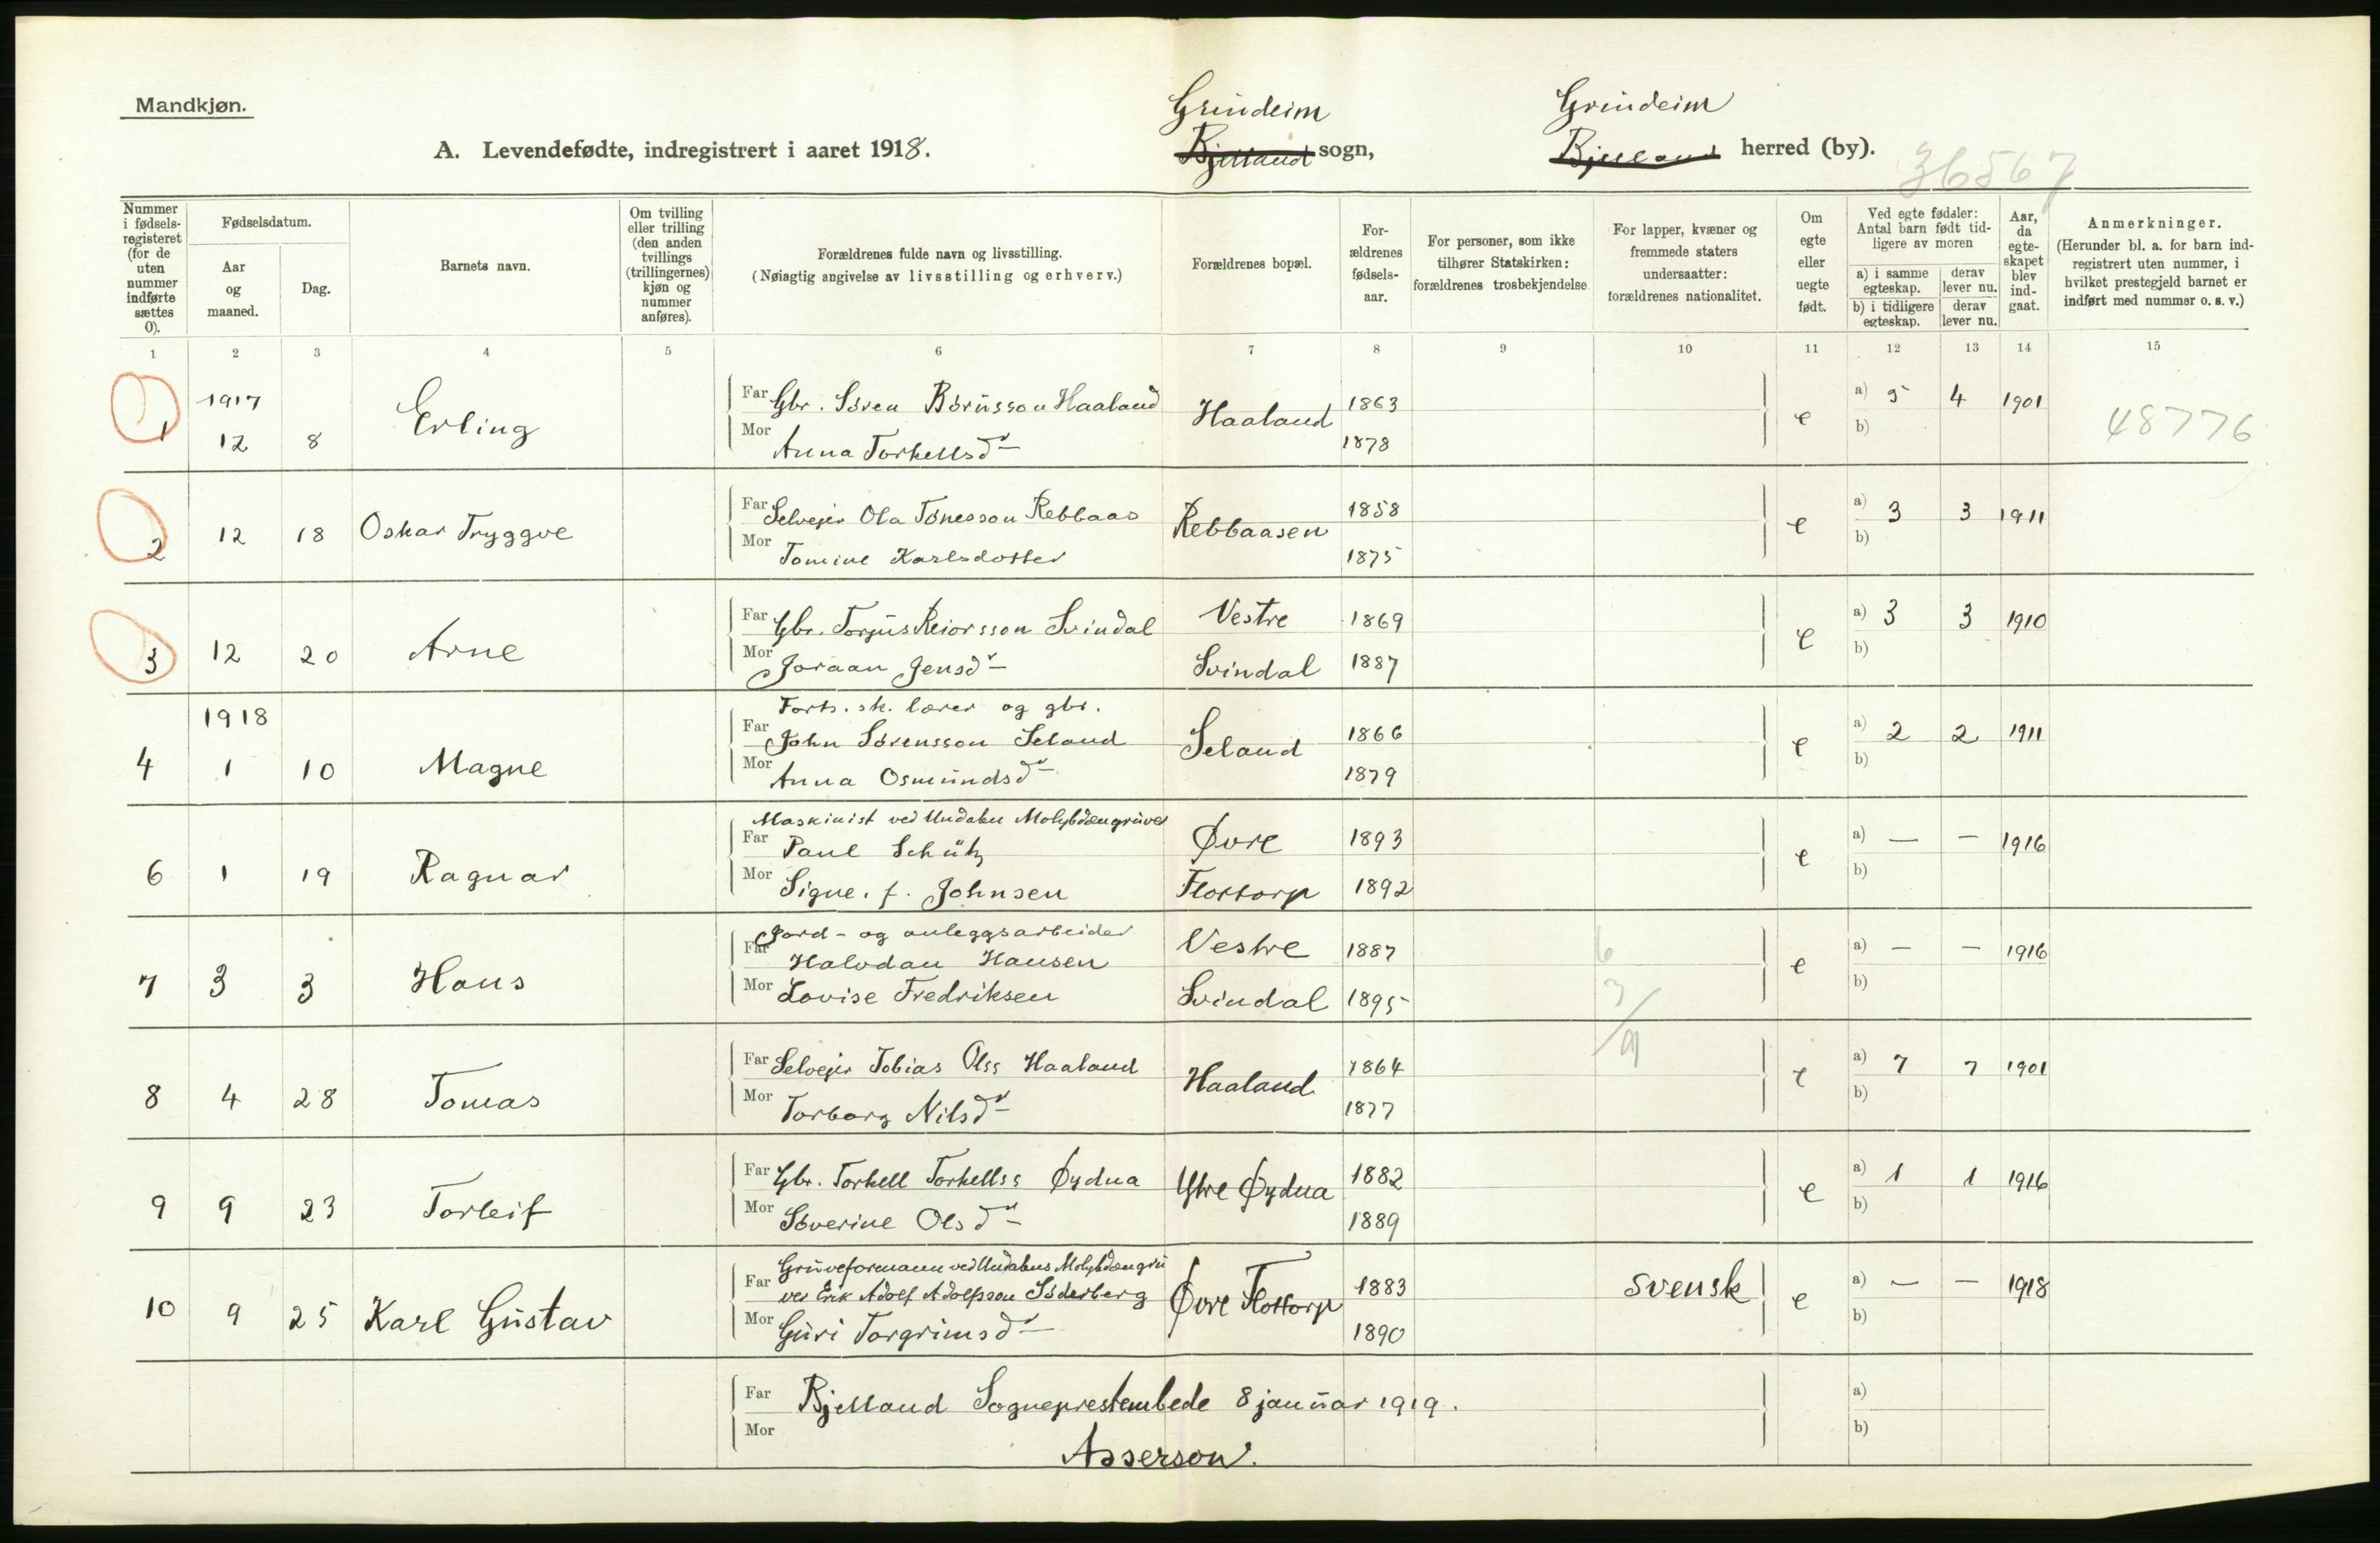 Mandkjøn.
Grindeim Grindeim
A. Levendefødte, indregistrert i aaret 1918. Bjelland sogn, Bjelland herred (by).
36567
Nummer i fødselsregisteret (for de uten nummer indførte sættes 0).
Fødselsdatum.
Aar og maaned.
Dag.
Barnets navn.
Om tvilling eller trilling (den anden tvillings (trillingernes) kjøn og nummer anføres).
Forældrenes fulde navn og livsstilling.
(Nøiagtig angivelse av livsstilling og erhverv.)
Forældrenes bopæl.
Forældrenes fødselsaar.
For personer, som ikke tilhører Statskirken: forældrenes trosbekjendelse.
For lapper, kvæner og fremmede staters undersaatter: forældrenes nationalitet.
Om egte eller uegte født.
Ved egte fødsler: Antal barn født tidligere av moren
a) i samme egteskap. derav lever nu.
b) i tidligere egteskap. derav lever nu.
Aar, da egteskapet blev indgaat.
Anmerkninger.
(Herunder bl. a. for barn indregistrert uten nummer, i hvilket prestegjeld barnet er indført med nummer o. s. v.)
1 2 3 4 5 6 7 8 9 10 11 12 13 14 15
1917
Far Gbr. Søren Børusson Haaland 1863 a) 5 4 1901
1 12 8 Erling Haaland e 48776
Mor Anna Torkellsdr 1878 b)
Far Selveier Ola Tønesson Rebbaas 1858 a) 3 3 1911
2 12 18 Oskar Tryggve Rebbaasen e
Mor Tomine Karlsdotter 1875 b)
Far Gbr. Torjus Reiorsson Svindal Vestre 1869 a) 3 3 1910
3 12 20 Arne e
Mor Joraan Jensdr Svindal 1887 b)
1918 Forts. sk. lærer og gbr.
Far John Sørensson Seland 1866 a) 2 2 1911
4 1 10 Magne Seland e
Mor Anna Osmundsdr 1879 b)
Maskinist ved Undalens Molybdængruver
Far Paul Schütz Øvre 1893 a) — — 1916
6 1 19 Ragnar e
Mor Signe. f. Johnsen Flottorp 1892 b)
Jord- og anleggsarbeider
Far Halvdan Hansen Vestre 1887 a) — — 1916
7 3 3 Hans e
Mor Lovise Fredriksen Svindal 1895 b)
Far Selveier Tobias Olss Haaland 1864 a) 7 7 1901
8 4 28 Tomas Haaland e
Mor Torborg Nilsdr 1877 b)
Far Gbr. Torkell Torkellss Øydna 1882 a) 1 1 1916
9 9 23 Torleif Ytre Øydna e
Mor Søverine Olsdr 1889 b)
Gruveformann ved Undalens Molybdængru
Far ver Erik Adolf Adolfsson Söderberg 1883 svensk a) — — 1918
10 9 25 Karl Gustav Øvre Flottorp e
Mor Guri Torgrimsdr 1890 b)
Far Bjelland Sogneprestembede 8 januar 1919. a)
Mor b)
Asserson.